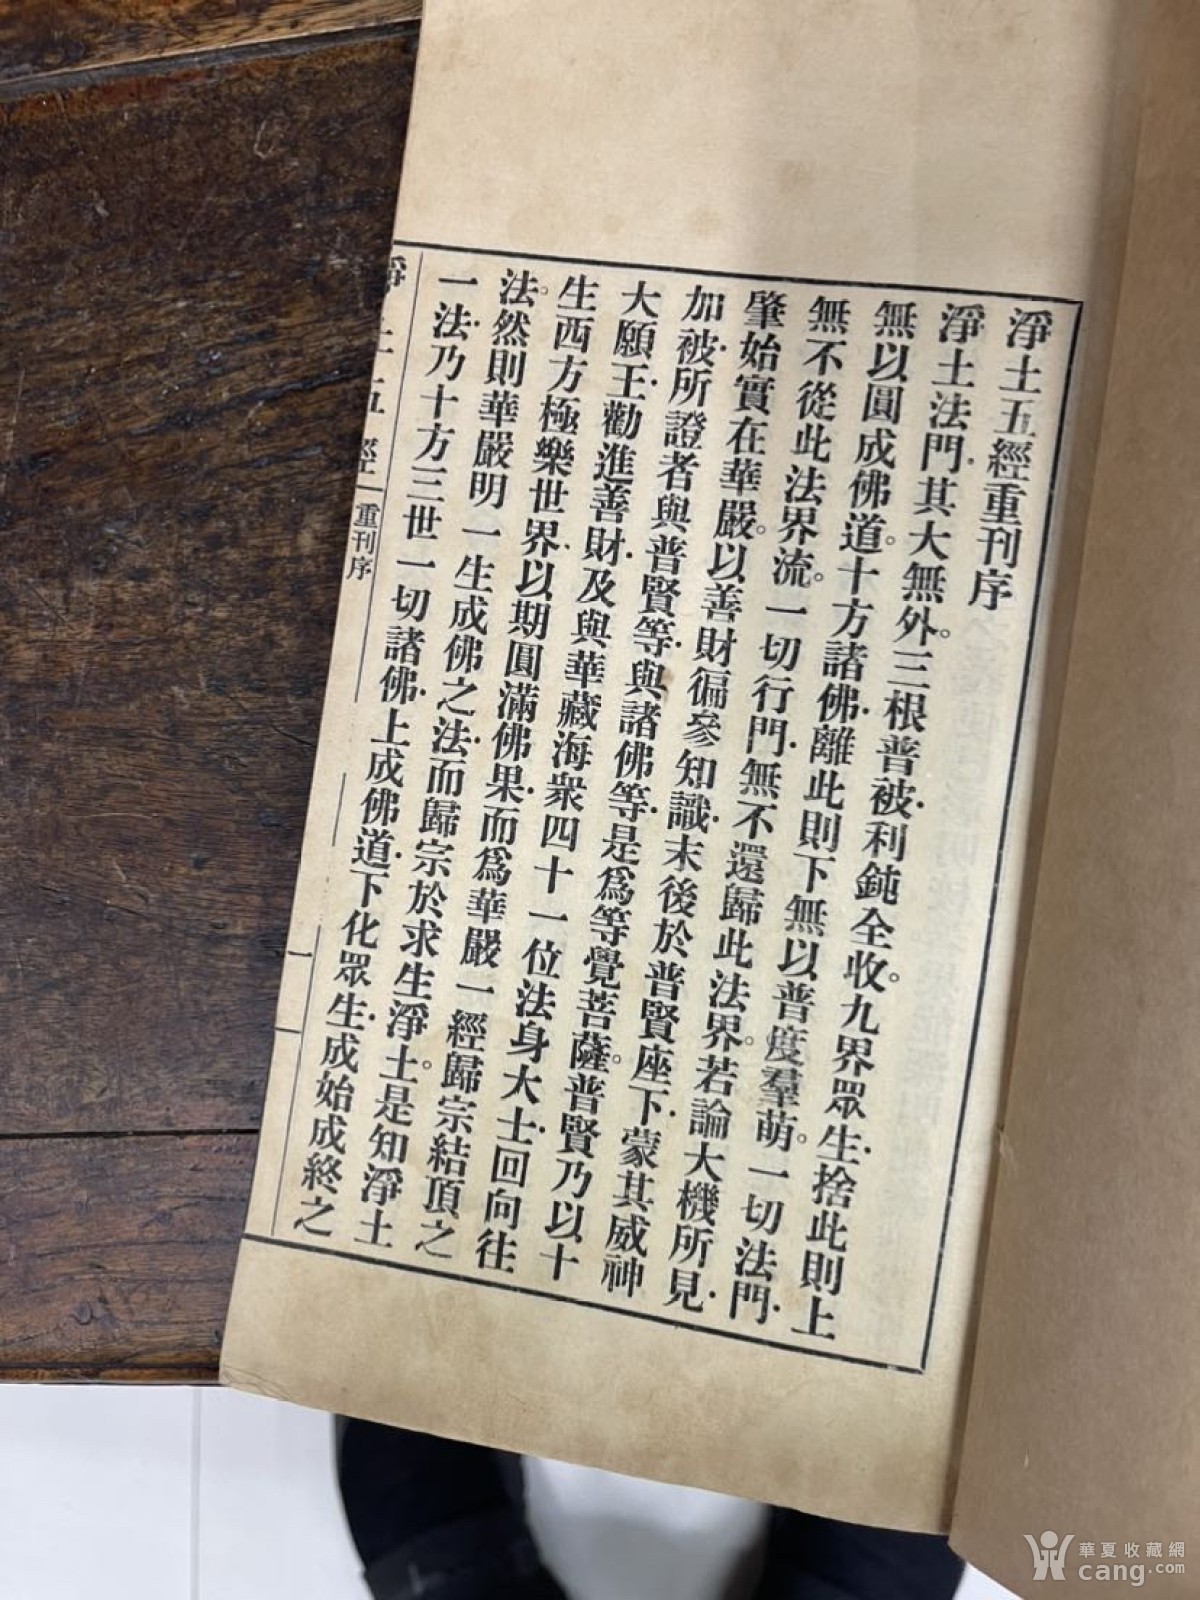 淨土五經重刊序
淨土法門.其大無外。三根普被.利鈍全收。九界眾生.捨此則上
無以圓成佛道。十方諸佛.離此則下無以普度羣萌。一切法門.
無不從此法界流。一切行門.無不還歸此法界。若論大機所見.
肇始實在華嚴。以善財徧參知識.末後於普賢座下.蒙其威神
加被.所證者與普賢等.與諸佛等.是爲等覺菩薩。普賢乃以十
大願王.勸進善財.及與華藏海衆四十一位法身大士.回向往
生西方極樂世界.以期圓滿佛果.而爲華嚴一經歸宗結頂之
法。然則華嚴明一生成佛之法.而歸宗於求生淨土。是知淨土
一法.乃十方三世一切諸佛.上成佛道.下化眾生.成始成終之
淨土五經 重刊序 一
華夏收藏網
cang.com